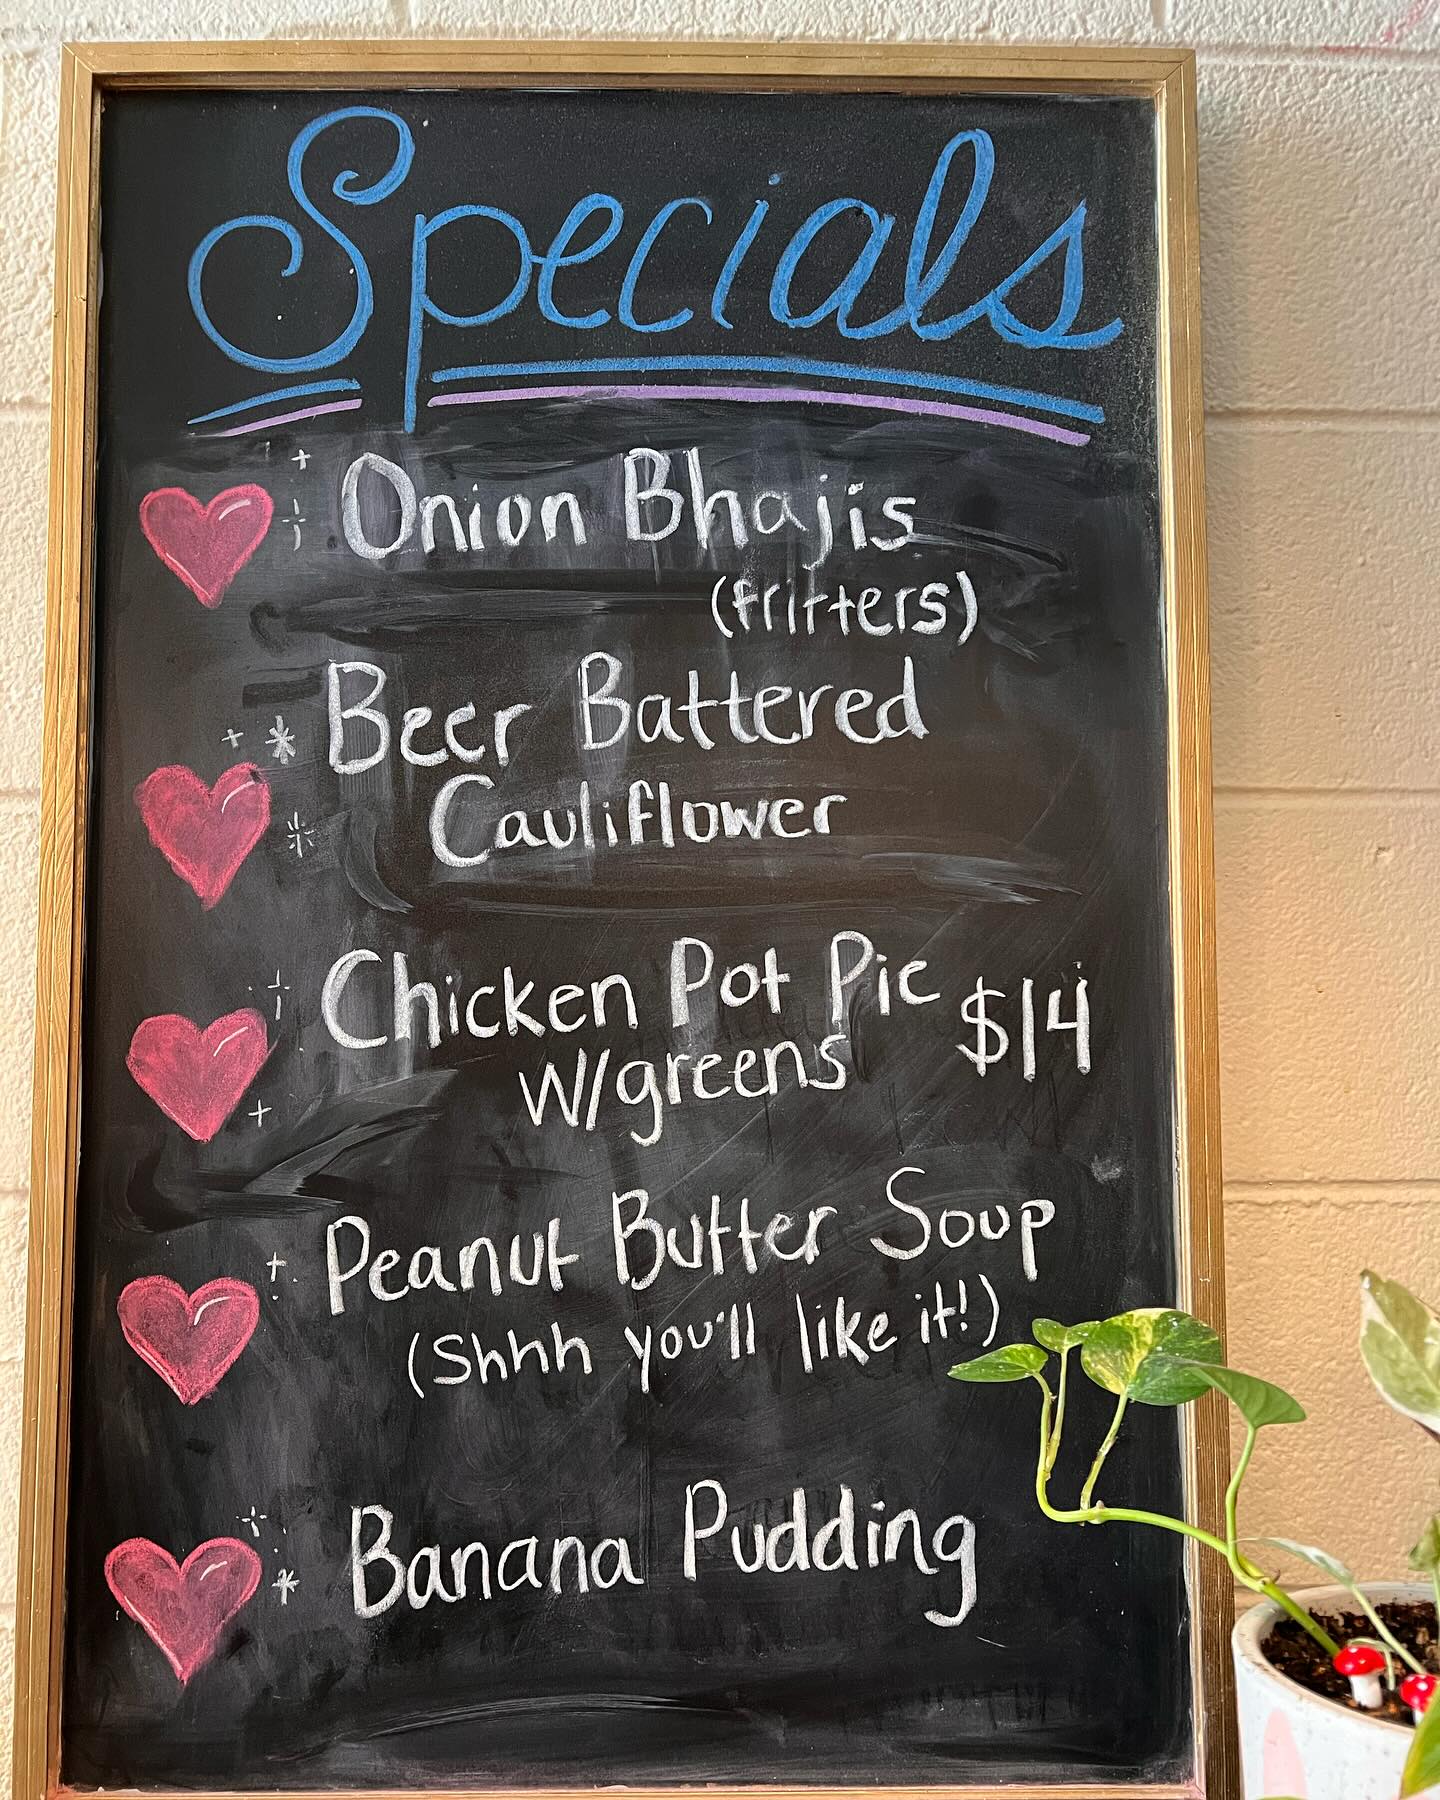 Specials
Onion Bhajis
(fritters)
Beer Battered
Cauliflower
Chicken Pot Pie $14
W/greens
Peanut Butter Soup
(Shhh you'll like it!)
Banana Pudding